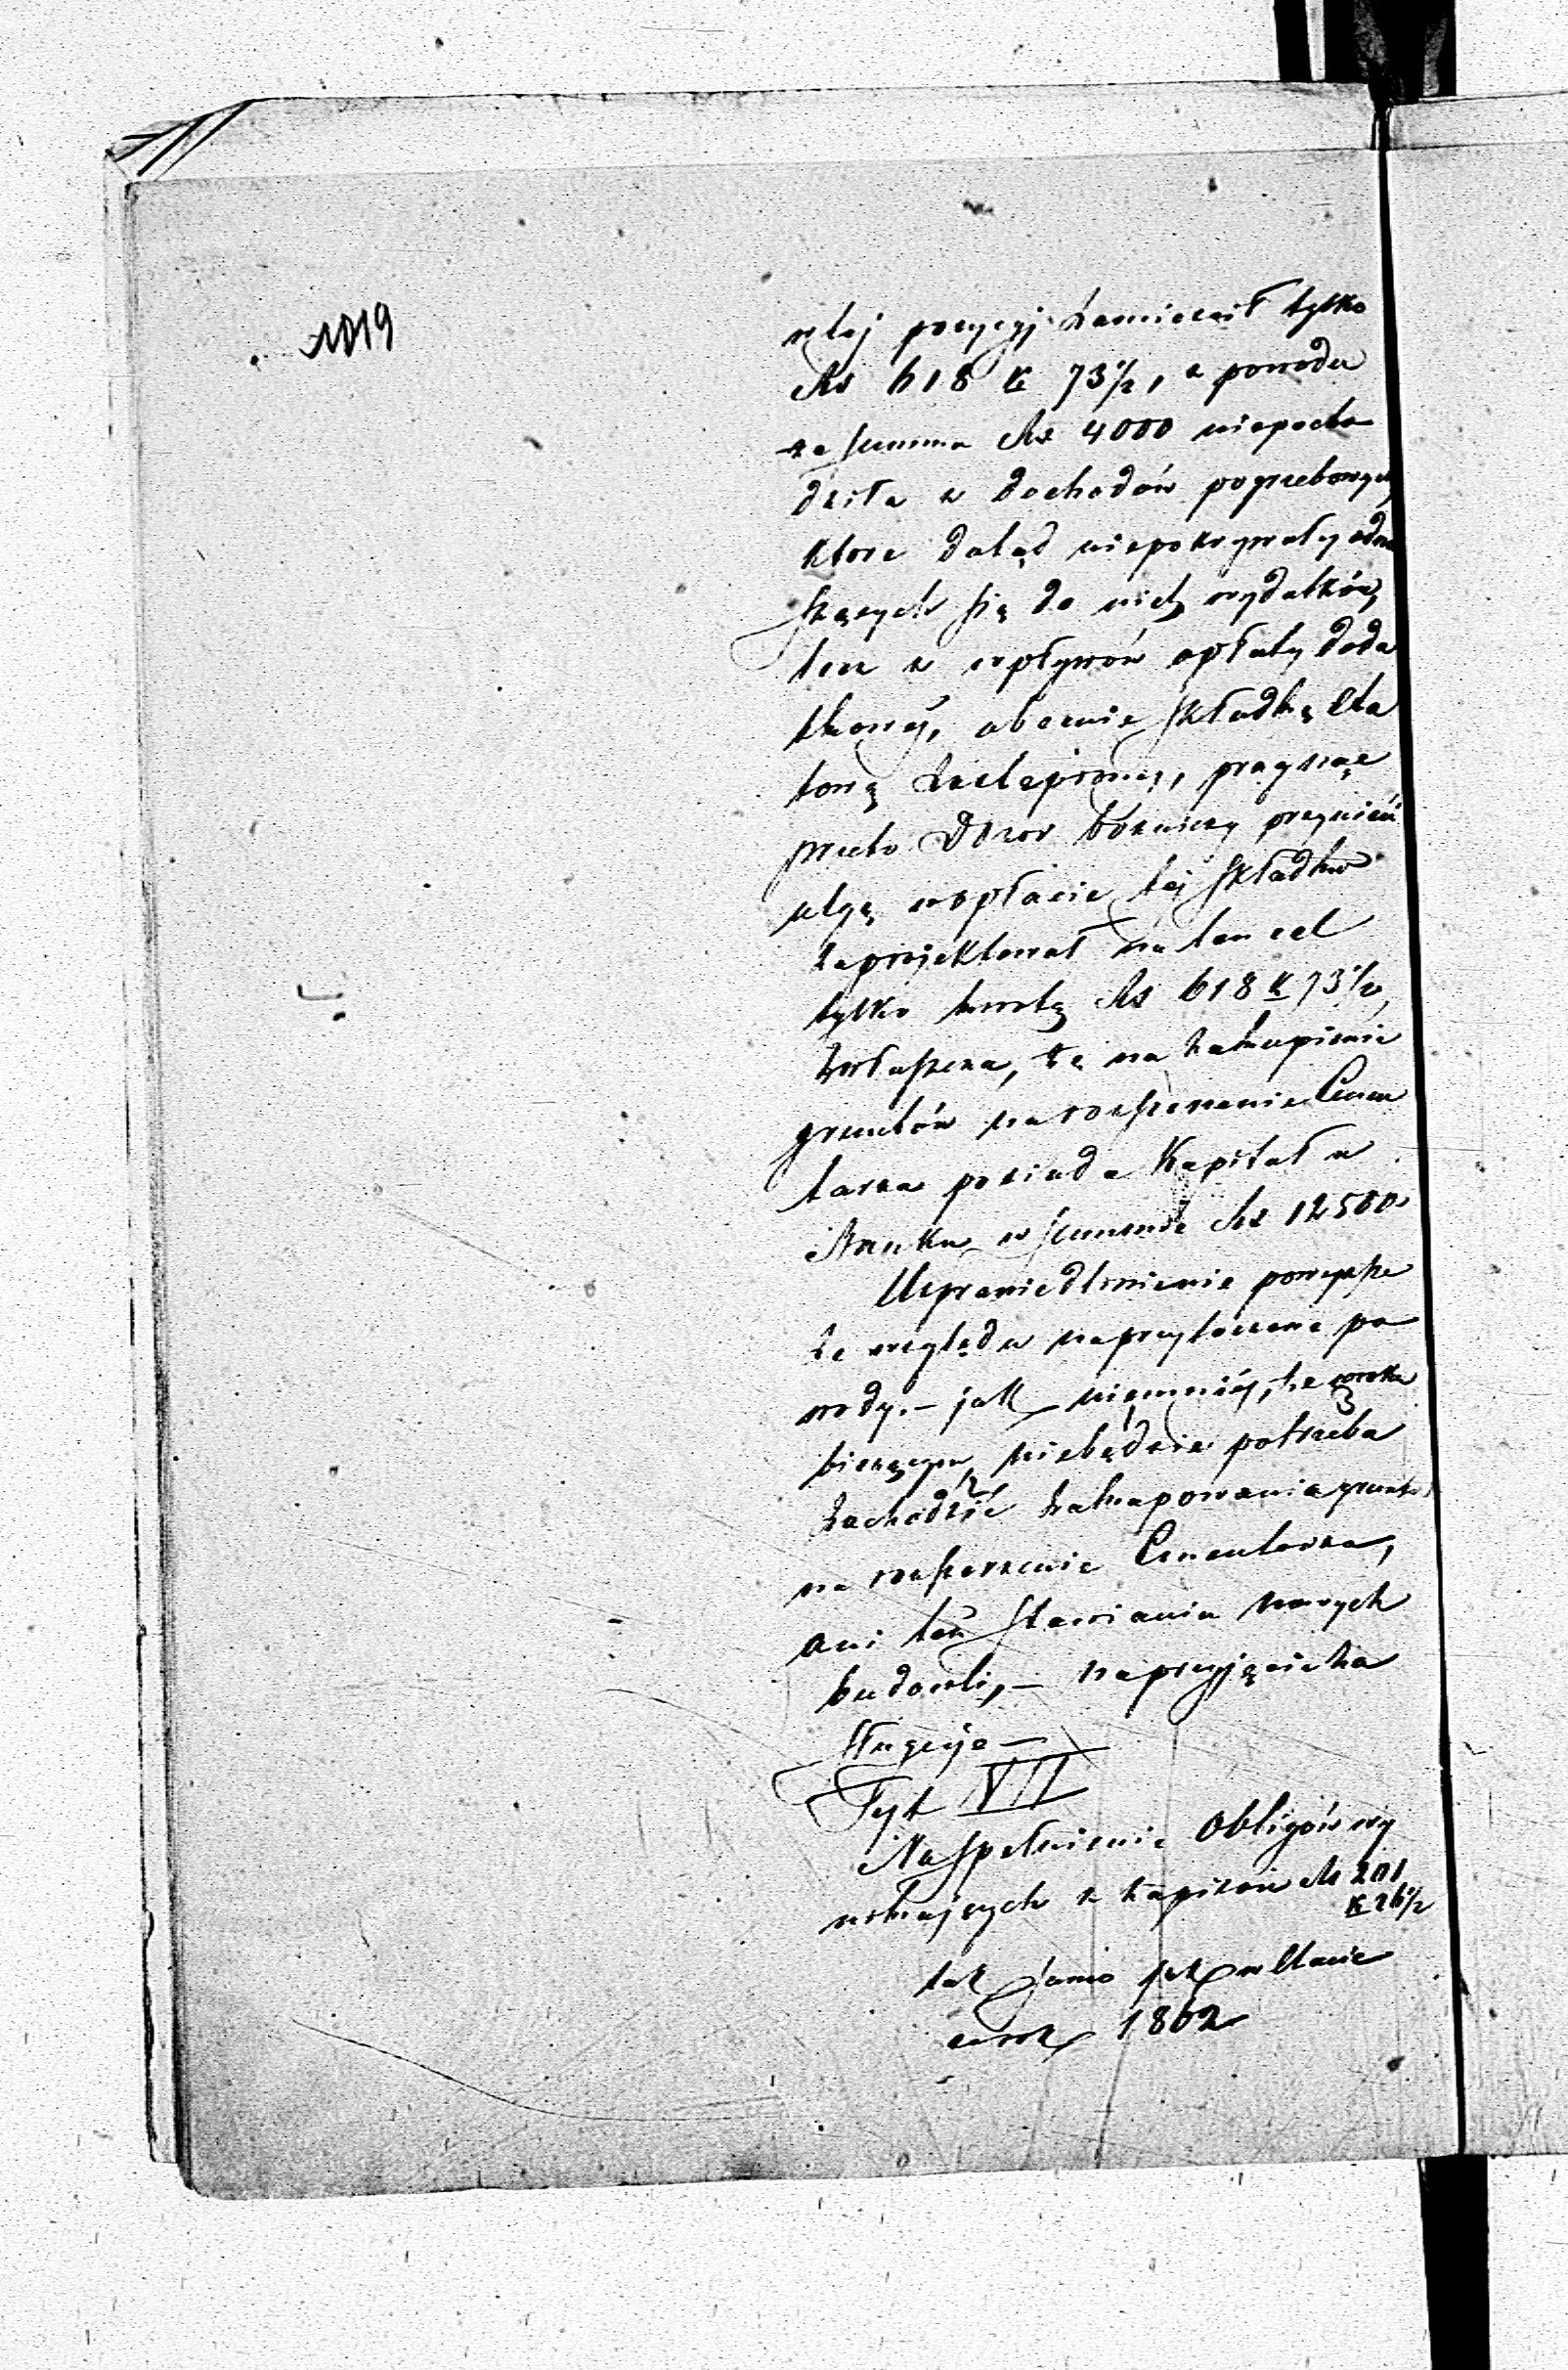 1019
w tej pozycyj zamieścił tylko
Rs 618 K 73½, z powodu
że summa Rs 4000 niepocho
dziła z dochodów pogrzebowych
ktore dotąd niepokrywały odno
szących się do nich wydatków,
lecz z wpływów opłaty doda
tkowéj, obecnie składką Eta
tową zastąpionéj, pragnąc
przeto Dozor Bóżniczy przynieść
ulgę w opłacie téj składki
zaprojektował na ten cel
tylko kwotę Rs 618 K 73½,
zwłaszcza, że na zakupienie
gruntów na rozszerzenie Cmen
tarza posiada Kapitał w
Banku w summie Rs 12500.
Usprawiedliwienie powyższe
ze względu na przytoczone po
wody. – jak niemniéj, że w roku
bieżącym, niebędzie potrzeba
zachodzić zakupowania gruntu
na rozszerzenie Cmentarza,
ani też stawiania nowych
budowli, – na przyjęcie za
sługuje –
Tyt VII
Na spełnienie Obligów wy
nikających z zapisów Rs 201
K 26½
tak samo jak w Etacie
na rok 1862